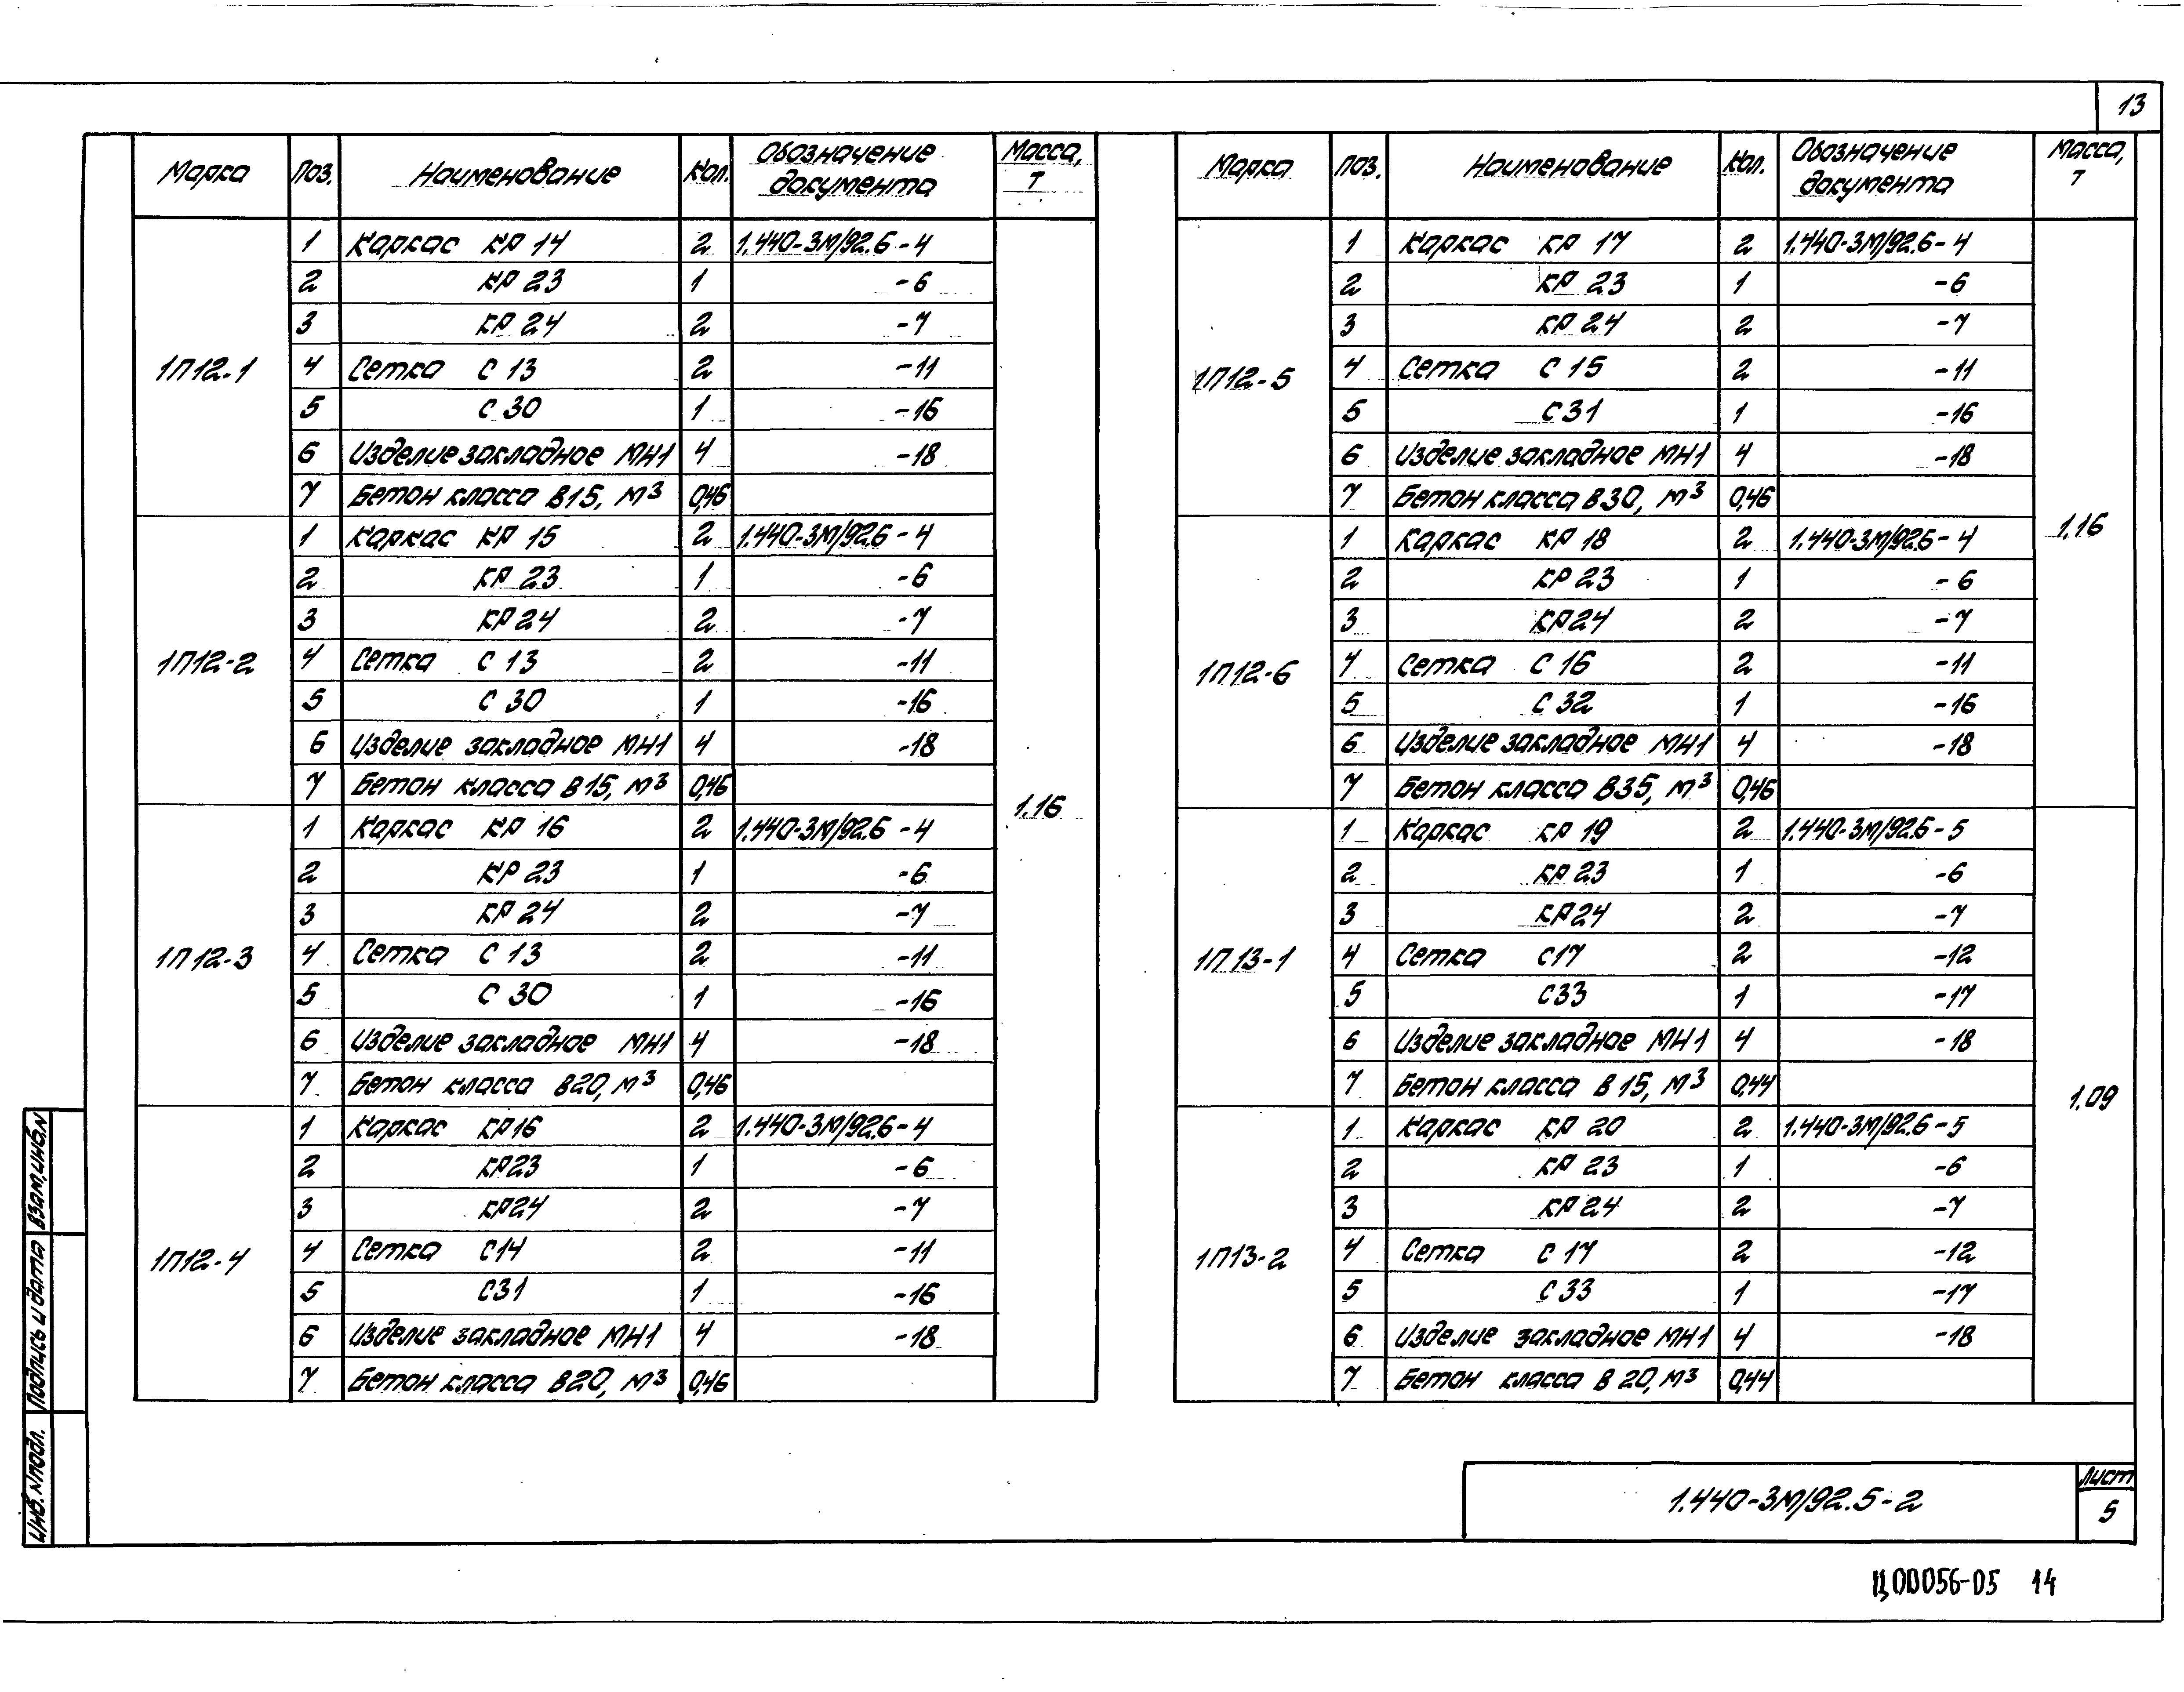 13
Марка Поз. Наименование Кол. Обозначение документа Масса, т
1П12-1
1 Каркас КР 14 2 1.440-3М/92.6-4
2 КР 23 1 -6
3 КР 24 2 -7
4 Сетка С 13 2 -11
5 С 30 1 -16
6 Изделие закладное МН1 4 -18
7 Бетон класса В15, м³ 0,46
1П12-2
1 Каркас КР 15 2 1.440-3М/92.6-4
2 КР 23 1 -6
3 КР 24 2 -7
4 Сетка С 13 2 -11
5 С 30 1 -16
6 Изделие закладное МН1 4 -18
7 Бетон класса В15, м³ 0,46
1.16
1П12-3
1 Каркас КР 16 2 1.440-3М/92.6-4
2 КР 23 1 -6
3 КР 24 2 -7
4 Сетка С 13 2 -11
5 С 30 1 -16
6 Изделие закладное МН1 4 -18
7 Бетон класса В20, м³ 0,46
1П12-4
1 Каркас КР16 2 1.440-3М/92.6-4
2 КР23 1 -6
3 КР24 2 -7
4 Сетка С14 2 -11
5 С31 1 -16
6 Изделие закладное МН1 4 -18
7 Бетон класса В20, м³ 0,46
Марка Поз. Наименование Кол. Обозначение документа Масса, т
1П12-5
1 Каркас КР 17 2 1.440-3М/92.6-4
2 КР 23 1 -6
3 КР 24 2 -7
4 Сетка С 15 2 -11
5 С31 1 -16
6 Изделие закладное МН1 4 -18
7 Бетон класса В30, м³ 0,46
1.16
1П12-6
1 Каркас КР 18 2 1.440-3М/92.6-4
2 КР 23 1 -6
3 КР24 2 -7
4 Сетка С 16 2 -11
5 С 32 1 -16
6 Изделие закладное МН1 4 -18
7 Бетон класса В35, м³ 0,46
1П13-1
1 Каркас КР 19 2 1.440-3М/92.6-5
2 КР 23 1 -6
3 КР24 2 -7
4 Сетка С17 2 -12
5 С33 1 -17
6 Изделие закладное МН1 4 -18
7 Бетон класса В 15, м³ 0,44
1.09
1П13-2
1 Каркас КР 20 2 1.440-3М/92.6-5
2 КР 23 1 -6
3 КР 24 2 -7
4 Сетка С 17 2 -12
5 С 33 1 -17
6 Изделие закладное МН1 4 -18
7 Бетон класса В 20, м³ 0,44
Инв. N подл. Подпись и дата Взам, инв. N
1.440-3М/92.5-2
Лист
5
Ц00056-05 14